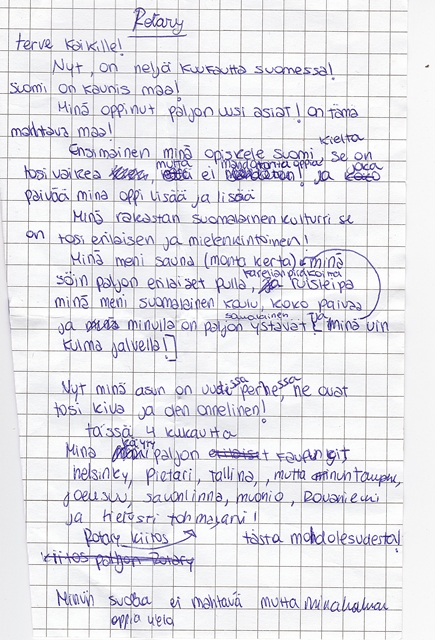 Rotary
terve kaikille!
Nyt, on neljä kuukautta suomessa!
suomi on kaunis maa!
Minä oppinut paljon uusi asiat! on tämä
mahtava maa!
kielta
Ensimäinen minä opiskele suomi, se on
mutta mahdotonta oppia joka
tosi vaikea ei ja
päivää minä oppi lisää ja lisää
Minä rakastan suomalainen kulturri se
on tosi erilaisen ja mielenkiintoinen!
Minä meni sauna (monta kerta) minä
karjalan piirakoita
söin paljon erilaiset pulla, ruisleipa
minä meni suomalainen koulu, koko päivää
suomalainen ja
ja minulla on paljon ystävät minä uin
kulma jalvella!
Nyt minä asun on uudessa perhessa, ne ovat
tosi kiva ja olen onnelinen!
tässä 4 kukautta
käyny
Minä paljon kaupungit
helsinky, Pietari, Tallina, mutta
joeusuu, savonlinna, muonio, Rovaniemi
ja tietusti tohmajarvi!
Rotary kiitos tästa mahdolesudesta!
kiitos paljon Rotary
Minun suoma ei mahtavä mutta
oppia vielä